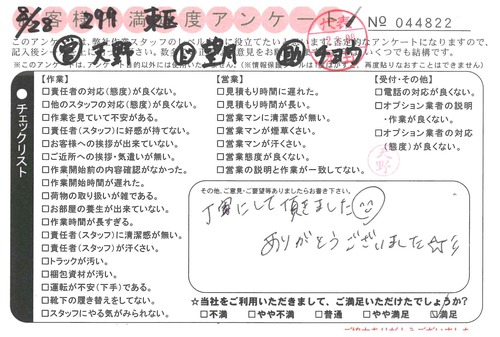 8/28 299 東正
お客様満足度アンケート NO 044822
このアンケートは、弊社作業スタッフの
記入後スタッフに
㊂ 天野
【作業】
□責任者の対応(態度)が良くない。
□他のスタッフの対応(態度)が良くない。
□作業を見ていて不安がある。
□責任者(スタッフ)に好感が持てない。
□お客様への挨拶が出来ていない。
□ご近所への挨拶・気遣いが無い。
□作業開始前の内容確認がなかった。
□作業開始時間が遅れた。
□荷物の取り扱いが雑である。
□お部屋の養生が出来ていない。
□作業時間が長すぎる。
□責任者(スタッフ)に清潔感が無い。
□責任者(スタッフ)が汗くさい。
□トラックが汚い。
□梱包資材が汚い。
□運転が不安(下手)である。
□靴下の履き替えをしてない。
□スタッフにやる気がみられない。
【営業】
□見積もり時間に遅れた。
□見積もり時間が長い。
□営業マンに清潔感が無い。
□営業マンが煙草くさい。
□営業マンが汗くさい。
□営業態度が良くない。
□営業の説明と作業が一致してない。
【受付・その他】
□電話の対応が良くない。
□オプション業者の説明
・作業が良くない。
□オプション業者の対応
(態度)が良くない。
天野
チェックリスト
その他、ご意見・ご要望等ありましたらお書き下さい。
丁寧にして頂きました
ありがとうございました☆彡
☆当社をご利用いただきまして、ご満足いただけたでしょうか?
□不満 □やや不満 □普通 □やや満足 ☑満足
ご協力ありがとうございました